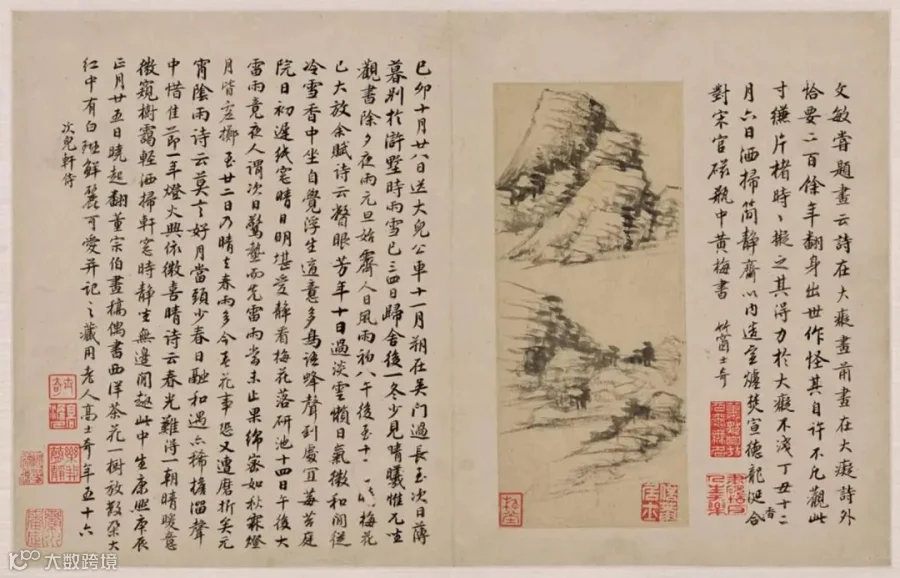 文敏嘗題畫云詩在大癡畫前畫在大癡詩外
恰要二百餘年翻身出世作怪其自許不凡觀此
寸縑片楮時〻擬之其得力於大癡不淺丁丑十二
月六日洒掃簡靜齋以內造宣爐焚宣德龍涎香合
對宋官磁瓶中黃梅書 竹窗士奇
己卯十月廿八日送大兒公車十一月朔在吳門過長至次日薄
暮別於滸墅時雨雪已三四日歸舍後一冬少見晴曦惟兀坐
觀書除夕夜雨元旦始霽人日風雨初八午後至十梅花
已大放余賦詩云瞥眼芳年十日過淡雲懶日氣微和閒從
冷雪香中坐自覺浮生適意多蜂聲到處宜莓苔庭
院日初遲紙窗晴日明堪愛靜看梅花落研池十四日午後大
雷雨竟夜人謂次日驚蟄而先雷雨當未止果綿密如秋霖燈
月皆虛擲至廿二日乃晴春雨多今年花事恐又遭磨折矣元
宵陰雨詩云莫言好月當頭少春日融和過亦稀檐溜聲
中惜佳節一年燈火興依微喜晴詩云春光難得一朝晴暖意
微窺樹靄輕洒掃軒窗時靜坐無邊閒趣此中生康熙庚辰
正月廿五日曉起翻董宗伯畫稿偶書西洋茶花一樹放數朵大
紅中有白斑鮮麗可愛并記之藏用老人高士奇年五十六
次兒軒侍
大数跨境